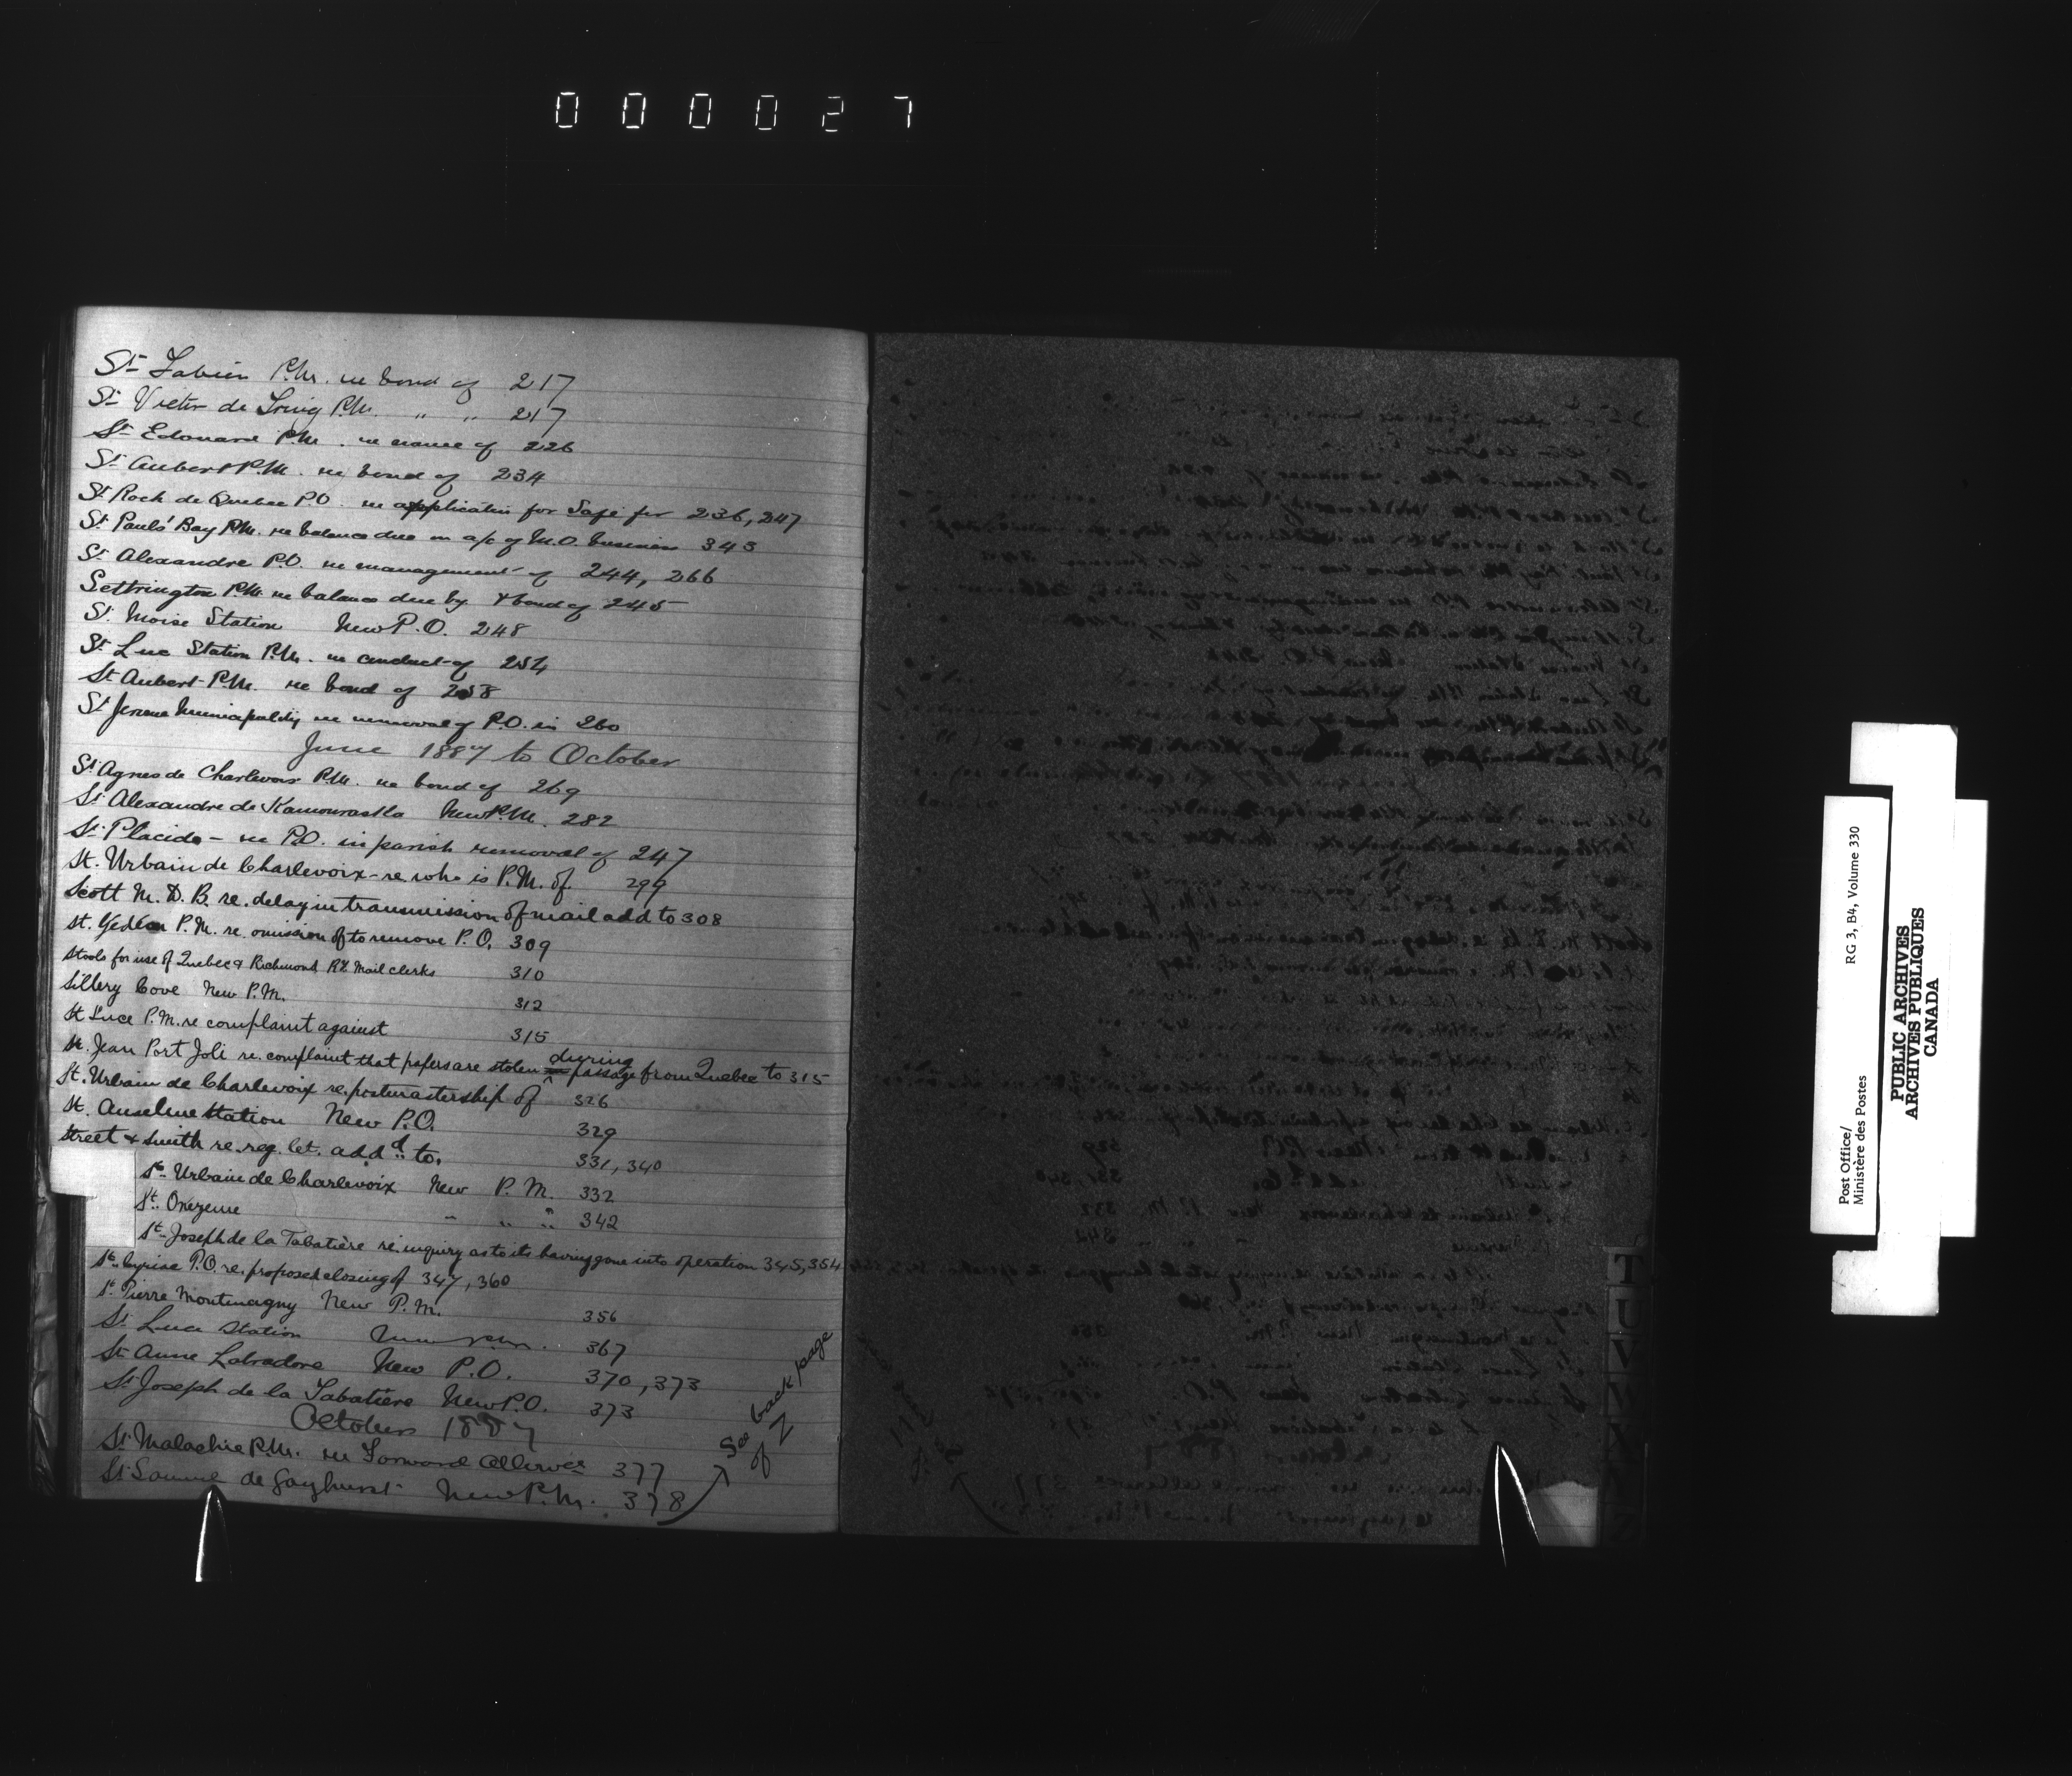 000027
St Fabien P.M. re bond of 217
St Victor de Tring P.M. " " 217
St Edouard P.M. re name of 226
St Aubert P.M. re bond of 234
St Roch de Quebec P.O. re application for Safe for 236, 247
St Pauls' Bay P.M. re balance due on a/c of M.O. business 343
St Alexandre P.O. re management of 244, 266
Settrington P.M. re balance due by & bond of 245
St. Moise Station New P.O. 248
St Luc Station P.M. re conduct of 254
St Aubert P.M. re bond of 258
St Jerome Municipality re removal of P.O. in 260
June 1887 to October
St Agnes de Charlevoix P.M. re bond of 269
St Alexandre de Kamouraska New P.M. 282
St Placide - re P.O. in parish removal of 247
St. Urbain de Charlevoix - re who is P.M. of. 299
Scott M. D. B. re. delay in transmission of mail add to 308
St. Gedéon P.M. re omission of to remove P.O. 309
Stools for use of Quebec & Richmond RY Mail clerks 310
Sillery Cove New P.M. 312
St Luce P.M. re complaint against 315
St. Jean Port Joli re. complaint that papers are stolen during passage from Quebec to 315
St. Urbain de Charlevoix re. postmastership of 326
St. Anselme Station New P.O. 329
Street & Smith re. reg. let. add.d to. 331, 340
St. Urbain de Charlevoix New P.M. 332
St. Onezeme " " " 342
St. Joseph de la Tabatière re. inquiry as to its having gone into operation 345, 354
St. Cyriac P.O. re. proposed closing of 347, 360
St. Pierre Montmagny New P.M. 356
St Luce Station New P.M. 367
St Anne Labradore New P.O. 370, 373
St Joseph de la Tabatière New P.O. 373
October 1887
St Malachie P.M. re Forward Allowce 377
St de Gayhurst New P.M. 378
See back page
of Z
T
U
V
W
X
Z
Post Office/
Ministère des Postes
RG 3, B4, Volume 330
PUBLIC ARCHIVES
ARCHIVES PUBLIQUES
CANADA